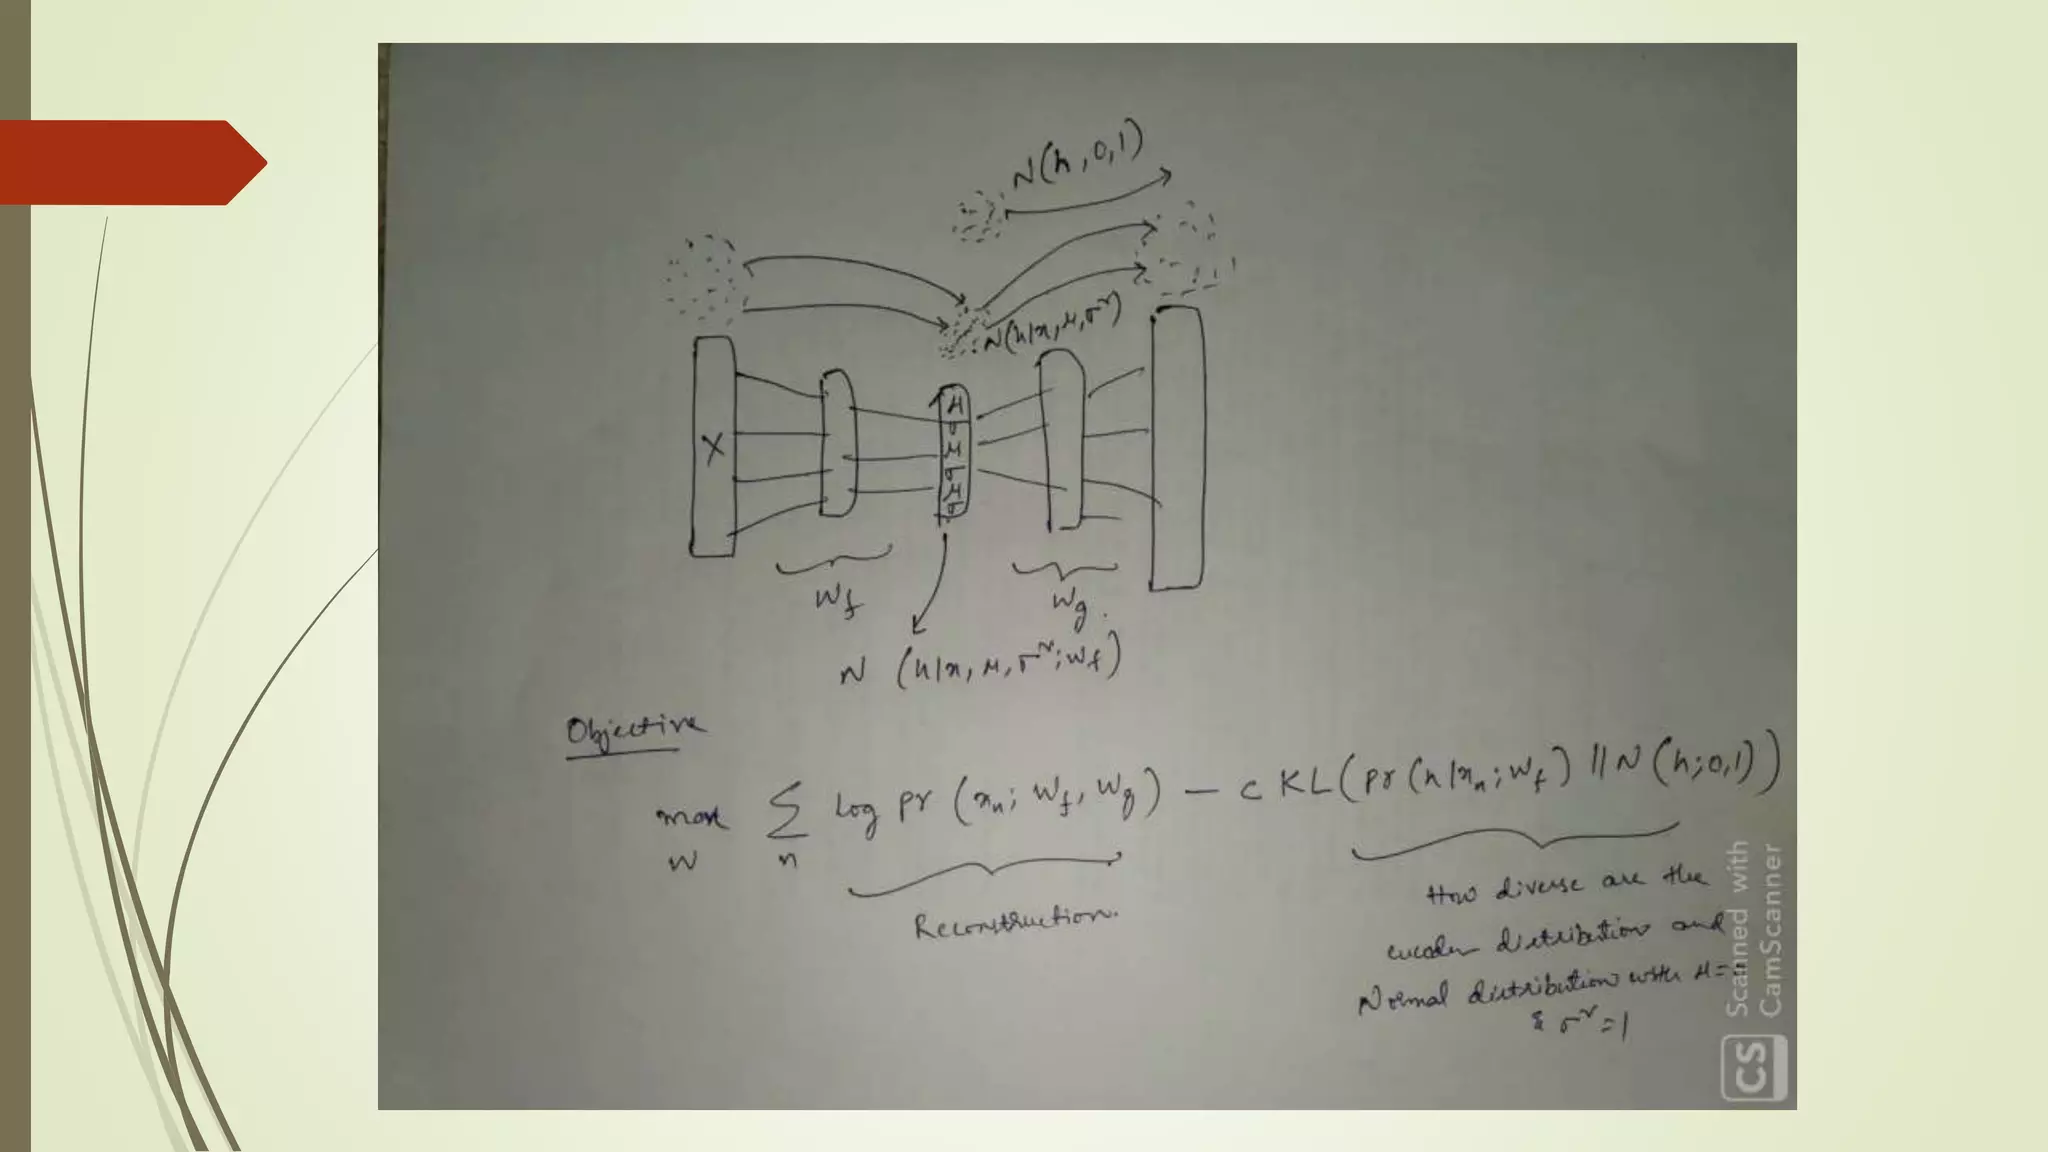 N(h,0,1)
N(h|x,μ,σ²)
X
μ
σ
μ
σ
μ
σ
W_f
W_g.
N (h|x, μ, σ²; W_f)
Objective
max Σ log Pr (x_n; W_f, W_g) - c KL(Pr(h|x_n; W_f) || N(h;0,1))
W n
Reconstruction.
How diverse are the
encoder distribution and
Normal distribution with μ=
& σ²=1
Scanned with
CamScanner
CS